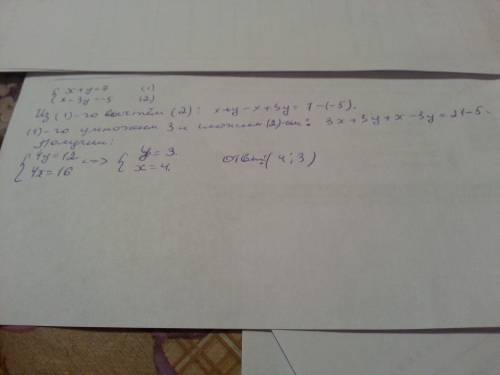 { x+y=7 (1)
{ x-3y=-5 (2)
Из (1)-го вычтём (2): x+y-x+3y=7-(-5).
(1)-го умножаем 3 и сложим (2)-ым: 3x+3y+x-3y=21-5.
Получим:
{ 4y=12 => { y=3.
{ 4x=16 { x=4.
ответ (4;3)